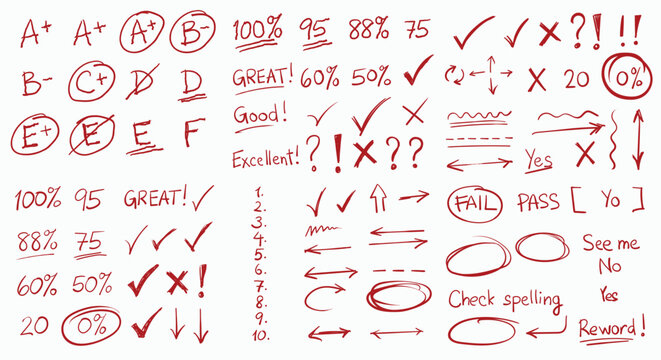 A+ A+ A+ B-
B- C+ D D
E+ E E F
100% 95 88% 75
GREAT! 60% 50%
Good!
Excellent! ? ! ? ?
? ! ! !
20 0%
Yes
100% 95 GREAT!
88% 75
60% 50% !
20 0%
1.
2.
3.
4.
5.
6.
7.
8.
9.
10.
FAIL PASS [ Yo ]
See me
No
Check spelling Yes
Reword!